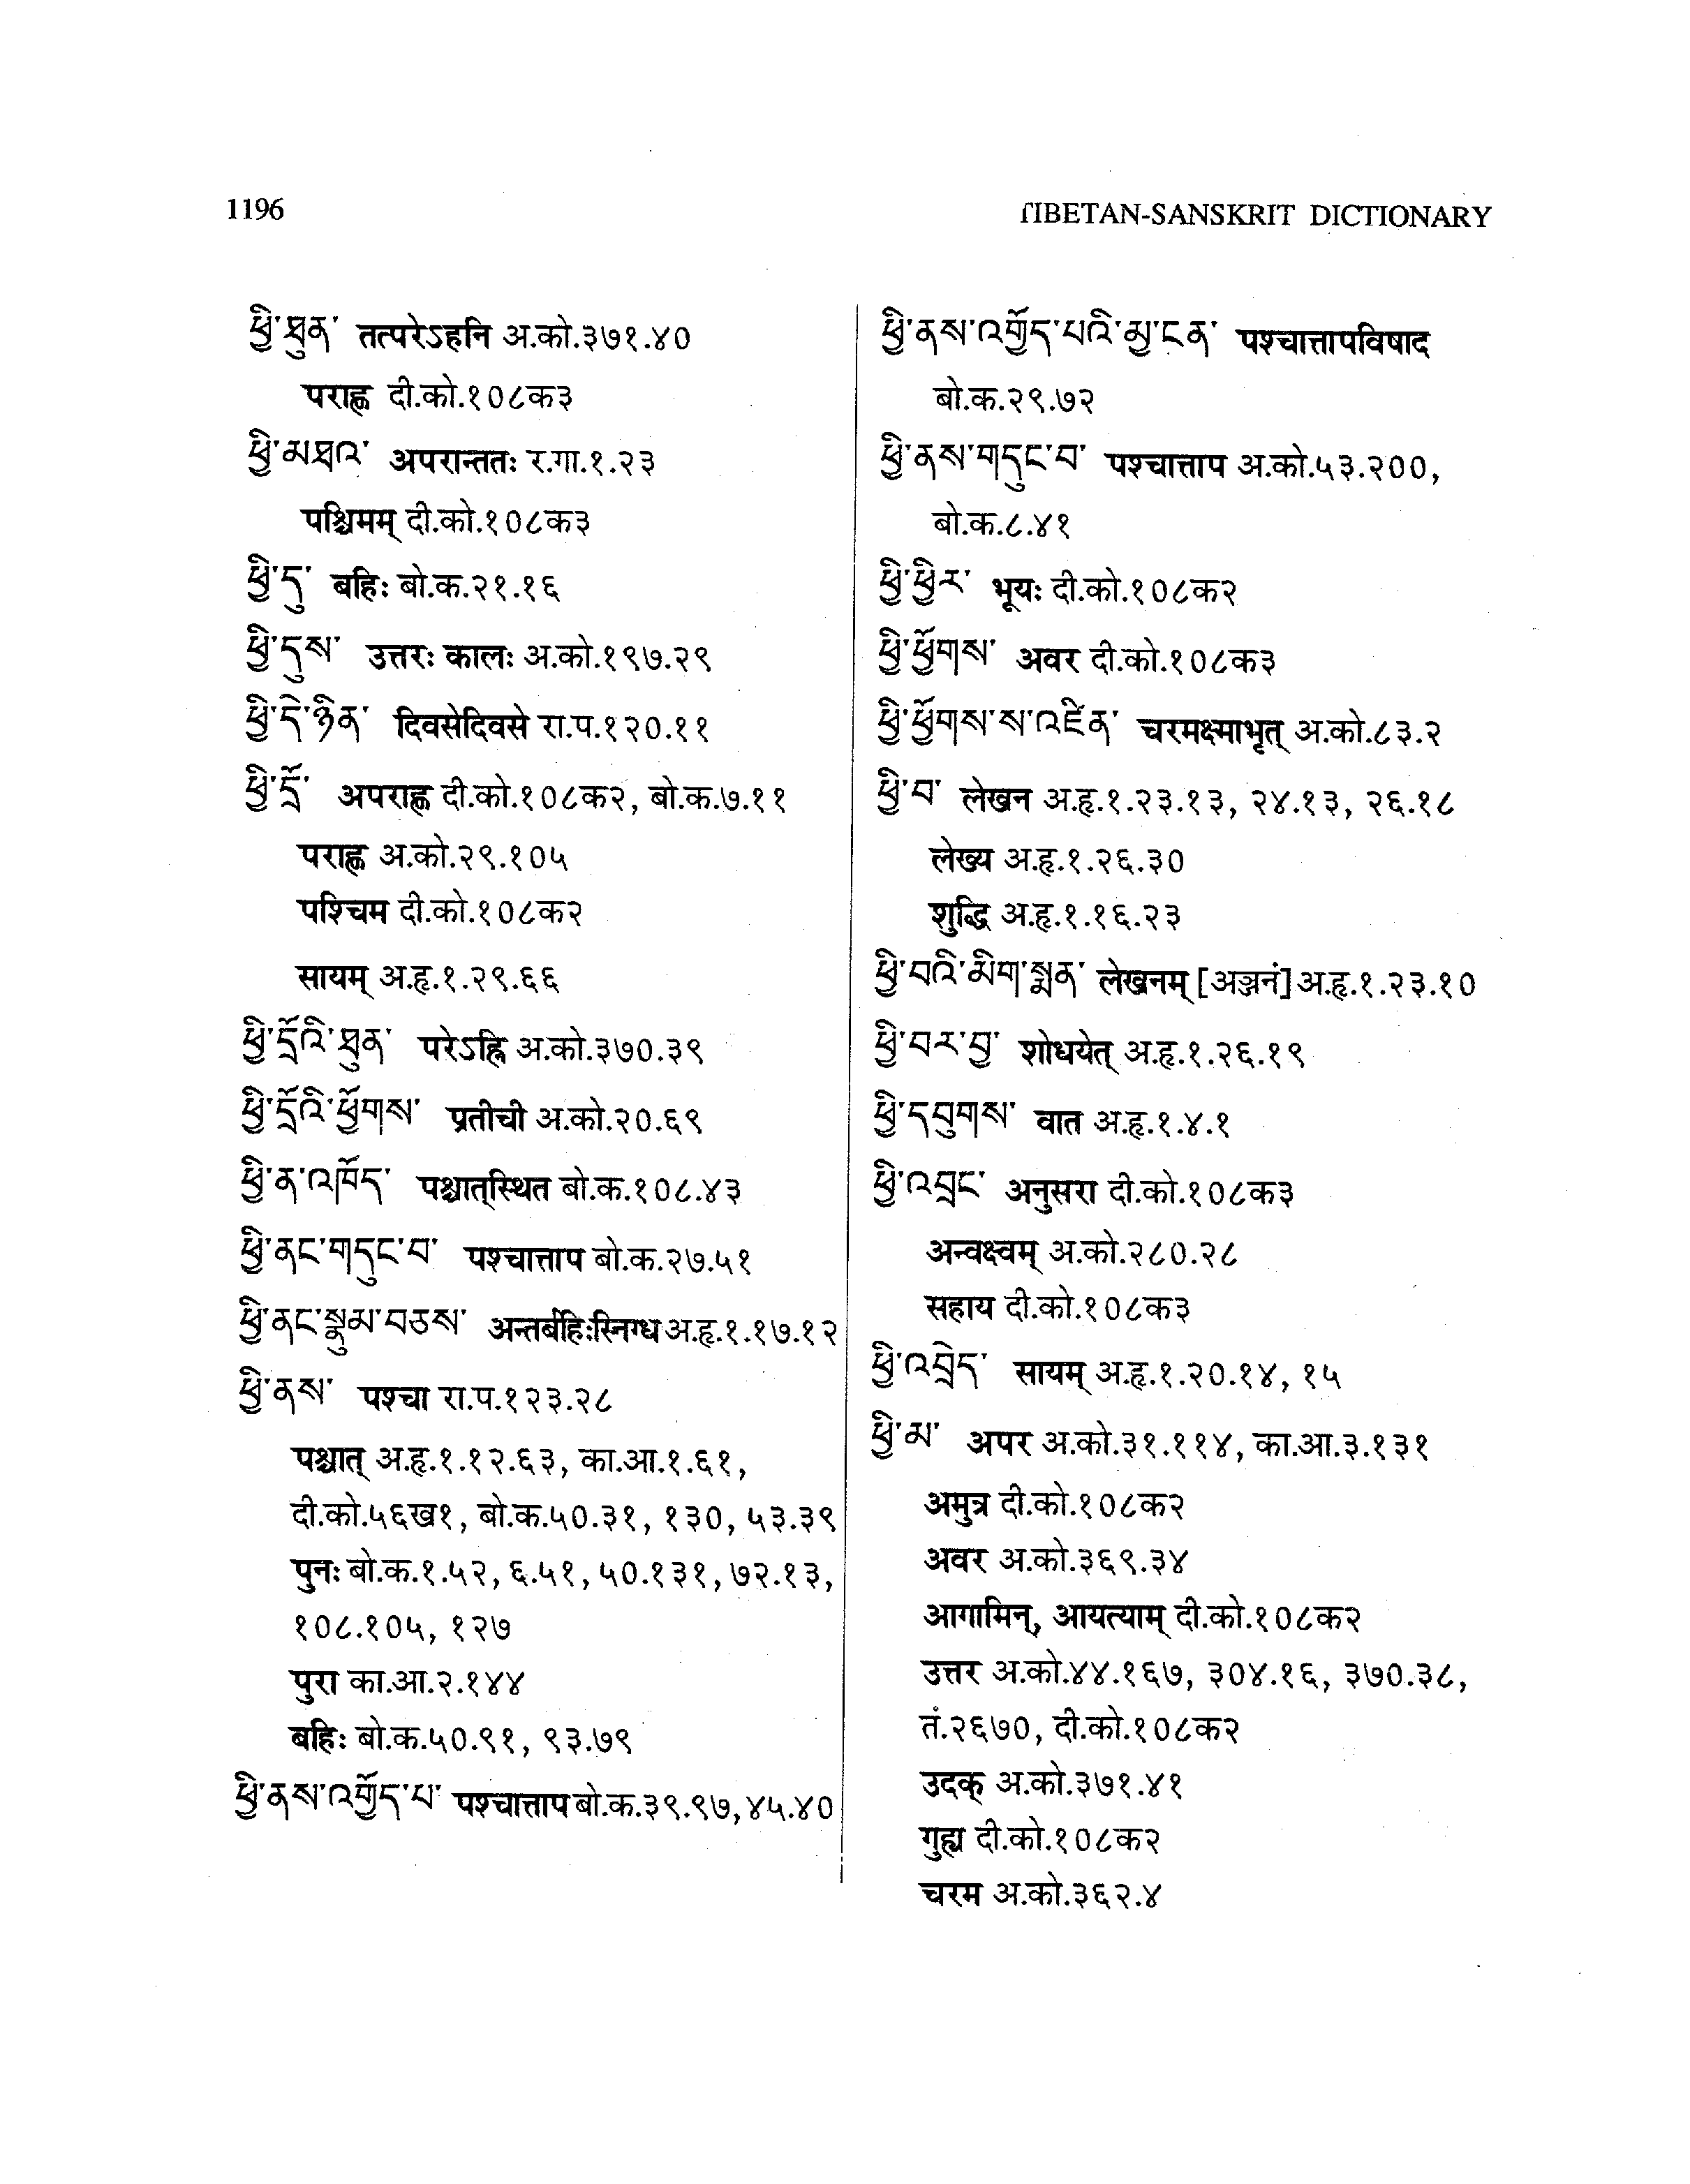 1196
TIBETAN-SANSKRIT DICTIONARY
ཕྱི་ཐུན་ तत्परेऽहनि अ.को.३७१.४०
पराह्ण दी.को.१०८क३
ཕྱི་མཐའ་ अपरान्ततः र.गा.१.२३
पश्चिमम् दी.को.१०८क३
ཕྱི་དུ་ बहिः बो.क.२१.१६
ཕྱི་དུས་ उत्तरः कालः अ.को.१९७.२९
ཕྱི་དེ་ཉིན་ दिवसेदिवसे रा.प.१२०.११
ཕྱི་དྲོ་ अपराह्ण दी.को.१०८क२, बो.क.७.११
पराह्ण अ.को.२९.१०५
पश्चिम दी.को.१०८क२
सायम् अ.हृ.१.२९.६६
ཕྱི་དྲོའི་ཐུན་ परेऽह्नि अ.को.३७०.३९
ཕྱི་དྲོའི་ཕྱོགས་ प्रतीची अ.को.२०.६९
ཕྱི་ན་འཁོད་ पश्चात्‌स्थित बो.क.१०८.४३
ཕྱི་ནང་གདུང་བ་ पश्चात्ताप बो.क.२७.५१
ཕྱི་ནང་སྣུམ་བཅས་ अन्तर्बहिःस्निग्ध अ.हृ.१.१७.१२
ཕྱི་ནས་ पश्चा रा.प.१२३.२८
पश्चात् अ.हृ.१.१२.६३, का.आ.१.६१,
दी.को.५६ख१, बो.क.५०.३१, १३०, ५३.३९
पुनः बो.क.१.५२, ६.५१, ५०.१३१, ७२.१३,
१०८.१०५, १२७
पुरा का.आ.२.१४४
बहिः बो.क.५०.९१, ९३.७९
ཕྱི་ནས་འགྱོད་པ་ पश्चात्ताप बो.क.३९.९७,४५.४०
ཕྱི་ནས་འགྱོད་པའི་མྱ་ངན་ पश्चात्तापविषाद
बो.क.२९.७२
ཕྱི་ནས་གདུང་བ་ पश्चात्ताप अ.को.५३.२००,
बो.क.८.४१
ཕྱི་ཕྱིར་ भूयः दी.को.१०८क२
ཕྱི་ཕྱོགས་ अवर दी.को.१०८क३
ཕྱི་ཕྱོགས་ས་འཛིན་ चरमक्ष्माभृत् अ.को.८३.२
ཕྱི་བ་ लेखन अ.हृ.१.२३.१३, २४.१३, २६.१८
लेख्य अ.हृ.१.२६.३०
शुद्धि अ.हृ.१.१६.२३
ཕྱི་བའི་མིག་སྨན་ लेखनम् [अञ्जनं] अ.हृ.१.२३.१०
ཕྱི་བར་བྱ་ शोधयेत् अ.हृ.१.२६.१९
ཕྱི་དབུགས་ वात अ.हृ.१.४.१
ཕྱི་འབྲང་ अनुसरा दी.को.१०८क३
अन्वक्ष्वम् अ.को.२८०.२८
सहाय दी.को.१०८क३
ཕྱི་འབྲེད་ सायम् अ.हृ.१.२०.१४, १५
ཕྱི་མ་ अपर अ.को.३१.११४, का.आ.३.१३१
अमुत्र दी.को.१०८क२
अवर अ.को.३६९.३४
आगामिन्, आयत्याम् दी.को.१०८क२
उत्तर अ.को.४४.१६७, ३०४.१६, ३७०.३८,
तं.२६७०, दी.को.१०८क२
उदक् अ.को.३७१.४१
गुह्य दी.को.१०८क२
चरम अ.को.३६२.४